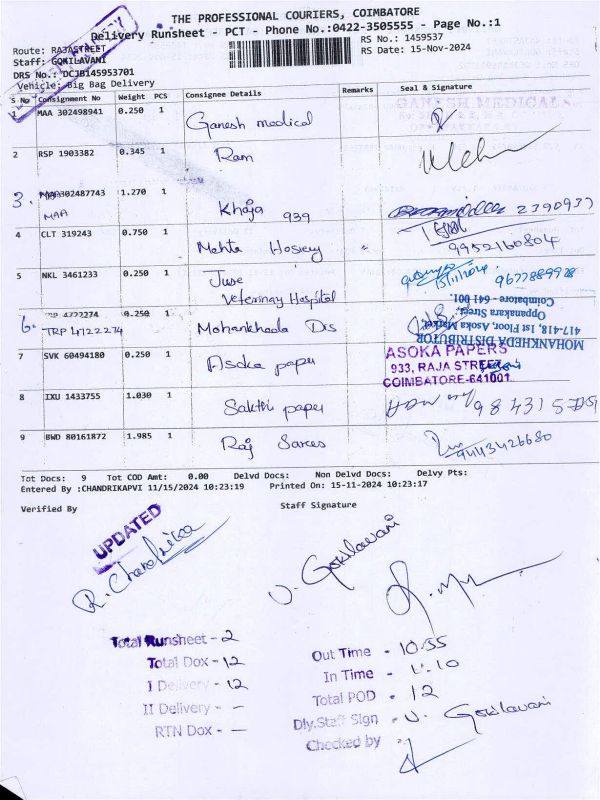 THE PROFESSIONAL COURIERS, COIMBATORE
Delivery Runsheet - PCT - Phone No.:0422-3505555 - Page No.:1
Route: RAJASTREET
RS No.: 1459537
Staff: GOKILAVANI
RS Date: 15-Nov-2024
DRS No.: DCJB145953701
Vehicle: Big Bag Delivery
S No Consignment No Weight PCS Consignee Details Remarks Seal & Signature
1 MAA 302498941 0.250 1 Ganesh medical
GANESH MEDICALS
2 RSP 1903382 0.345 1 Ram
3. MAA302487743 1.270 1 Khaja 939
MAA
2390937
4 CLT 319243 0.750 1 Mehta Hosiery "
9952160804
5 NKL 3461233 0.250 1 Juse
Veterinary Hospital
15/11/2024
6. TRP 4722274 0.250 1
TRP 4722274 Mohankhada Dis
MOHANKHEDA DISTRIBUTOR
417-418, 1st Floor, Asoka Market,
Oppanakara Street,
Coimbatore - 641 001.
7 SVK 60494180 0.250 1 Asoka paper
ASOKA PAPERS
933, RAJA STREET,
COIMBATORE-641001
8 IXU 1433755 1.030 1 Sakthi paper
9 BWD 80161872 1.985 1 Raj Sarees
9443426680
Tot Docs: 9 Tot COD Amt: 0.00 Delvd Docs: Non Delvd Docs: Delvy Pts:
Entered By :CHANDRIKAPVI 11/15/2024 10:23:19 Printed On: 15-11-2024 10:23:17
Verified By
Staff Signature
UPDATED
R. Chandrika
V. Gokilavani
Total Runsheet - 2
Total Dox - 12
I Delivery - 12
II Delivery - -
RTN Dox - -
Out Time - 10.55
In Time - 4.10
Total POD - 12
Dly.Staff Sign - V. Gokilavani
Checked by